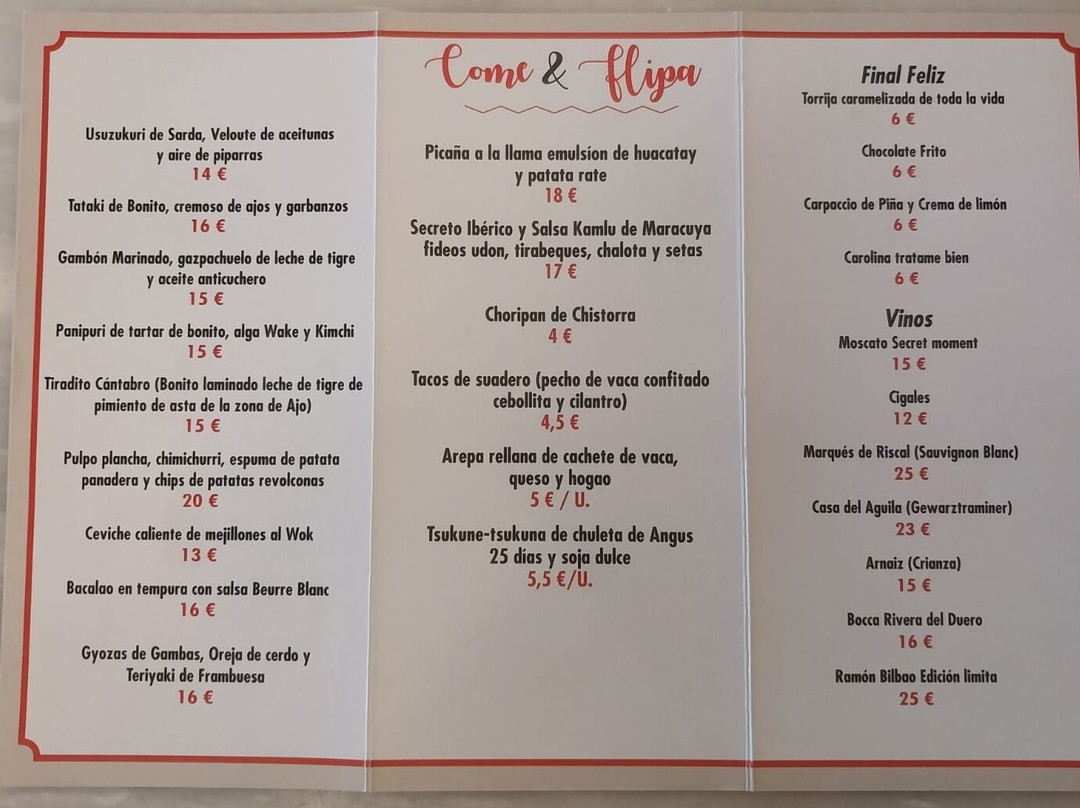 Usuzukuri de Sarda, Veloute de aceitunas
y aire de piparras
14 €
Tataki de Bonito, cremoso de ajos y garbanzos
16 €
Gambón Marinado, gazpachuelo de leche de tigre
y aceite anticuchero
15 €
Panipuri de tartar de bonito, alga Wake y Kimchi
15 €
Tiradito Cántabro (Bonito laminado leche de tigre de
pimiento de asta de la zona de Ajo)
15 €
Pulpo plancha, chimichurri, espuma de patata
panadera y chips de patatas revolconas
20 €
Ceviche caliente de mejillones al Wok
13 €
Bacalao en tempura con salsa Beurre Blanc
16 €
Gyozas de Gambas, Oreja de cerdo y
Teriyaki de Frambuesa
16 €
Come & Flipa
Picaña a la llama emulsíon de huacatay
y patata rate
18 €
Secreto Ibérico y Salsa Kamlu de Maracuya
fideos udon, tirabeques, chalota y setas
17 €
Choripan de Chistorra
4 €
Tacos de suadero (pecho de vaca confitado
cebollita y cilantro)
4,5 €
Arepa rellana de cachete de vaca,
queso y hogao
5 € / U.
Tsukune-tsukuna de chuleta de Angus
25 días y soja dulce
5,5 €/U.
Final Feliz
Torrija caramelizada de toda la vida
6 €
Chocolate Frito
6 €
Carpaccio de Piña y Crema de limón
6 €
Carolina tratame bien
6 €
Vinos
Moscato Secret moment
15 €
Cigales
12 €
Marqués de Riscal (Sauvignon Blanc)
25 €
Casa del Aguila (Gewarztraminer)
23 €
Arnaiz (Crianza)
15 €
Bocca Rivera del Duero
16 €
Ramón Bilbao Edición limita
25 €